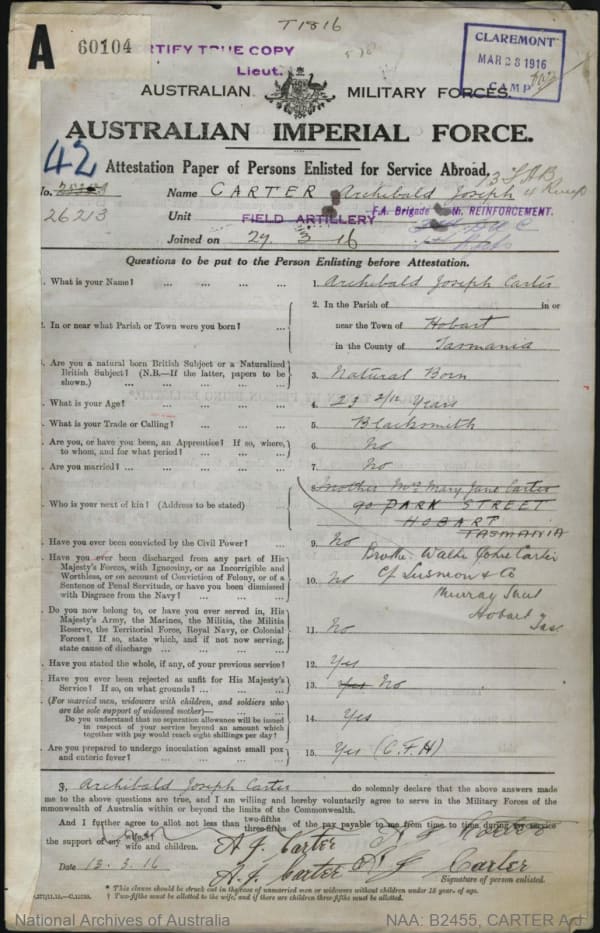 T1816
A 60104
CERTIFY TRUE COPY
Lieut.
CLAREMONT
MAR 28 1916
CAMP
AUSTRALIAN MILITARY FORCES.
AUSTRALIAN IMPERIAL FORCE.
42
Attestation Paper of Persons Enlisted for Service Abroad.
No. 26213
Name CARTER Archibald Joseph
Unit FIELD ARTILLERY F.A. Brigade REINFORCEMENT.
Joined on 29 3 16
Questions to be put to the Person Enlisting before Attestation.
. What is your Name? ... ... ... ... 1. Archibald Joseph Carter
2. In the Parish of in or
2. In or near what Parish or Town were you born? ... near the Town of Hobart
in the County of Tasmania
. Are you a natural born British Subject or a Naturalized
British Subject? (N.B.—If the latter, papers to be
shown.) ... ... ... ... 3. Natural Born
. What is your Age? ... ... ... ... 4. 23 2/12 Years
. What is your Trade or Calling? ... ... ... 5. Blacksmith
. Are you, or have you been, an Apprentice? If so, where,
to whom, and for what period? ... ... ... 6. No
. Are you married? ... ... ... ... 7. No
8. Mother Mrs Mary Jane Carter
. Who is your next of kin? (Address to be stated) ... 90 PARK STREET
HOBART
TASMANIA
. Have you ever been convicted by the Civil Power? ... 9. No
Walter John Carter
. Have you ever been discharged from any part of His
Majesty's Forces, with Ignominy, or as Incorrigible and
Worthless, or on account of Conviction of Felony, or of a
Sentence of Penal Servitude, or have you been dismissed
with Disgrace from the Navy? ... ... ... 10. No
Murray
Hobart
Tas.
. Do you now belong to, or have you ever served in, His
Majesty's Army, the Marines, the Militia, the Militia
Reserve, the Territorial Force, Royal Navy, or Colonial
Forces? If so, state which, and if not now serving,
state cause of discharge ... ... ... 11. No
. Have you stated the whole, if any, of your previous service? 12. Yes
. Have you ever been rejected as unfit for His Majesty's
Service? If so, on what grounds? ... ... ... 13. Yes No
. (For married men, widowers with children, and soldiers who
are the sole support of widowed mother)—
Do you understand that no separation allowance will be issued
in respect of your service beyond an amount which
together with pay would reach eight shillings per day? 14. Yes
. Are you prepared to undergo inoculation against small pox
and enteric fever? ... ... ... ... 15. Yes (C.F.H)
I, Archibald Joseph Carter do solemnly declare that the above answers made
me to the above questions are true, and I am willing and hereby voluntarily agree to serve in the Military Forces of the
mmonwealth of Australia within or beyond the limits of the Commonwealth.
And I further agree to allot not less than two-fifths three-fifths of the pay payable to me from time to time during my service
the support of my wife and children.
A J Carter
Date 13.3.16 A.J. Carter A J Carter
Signature of person enlisted.
* This clause should be struck out in the case of unmarried men or widowers without children under 18 years of age.
† Two-fifths must be allotted to the wife, and if there are children three-fifths must be allotted.
National Archives of Australia
NAA: B2455, CARTER A J